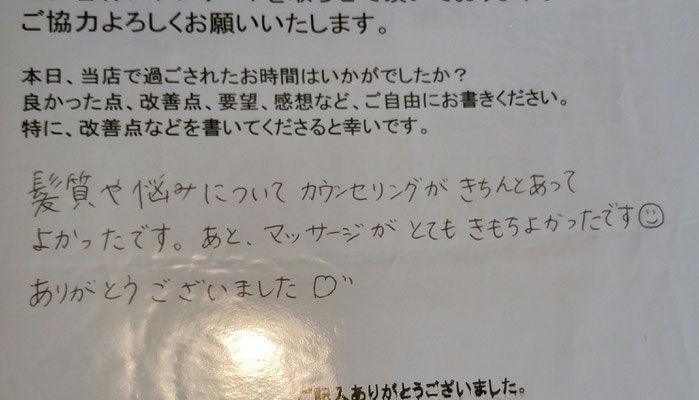 ご協力よろしくお願いいたします。
本日、当店で過ごされたお時間はいかがでしたか？
良かった点、改善点、要望、感想など、ご自由にお書きください。
特に、改善点などを書いてくださると幸いです。
髪質や悩みについてカウンセリングがきちんとあって
よかったです。あと、マッサージがとてもきもちよかったです
ありがとうございました♡
ご記入ありがとうございました。